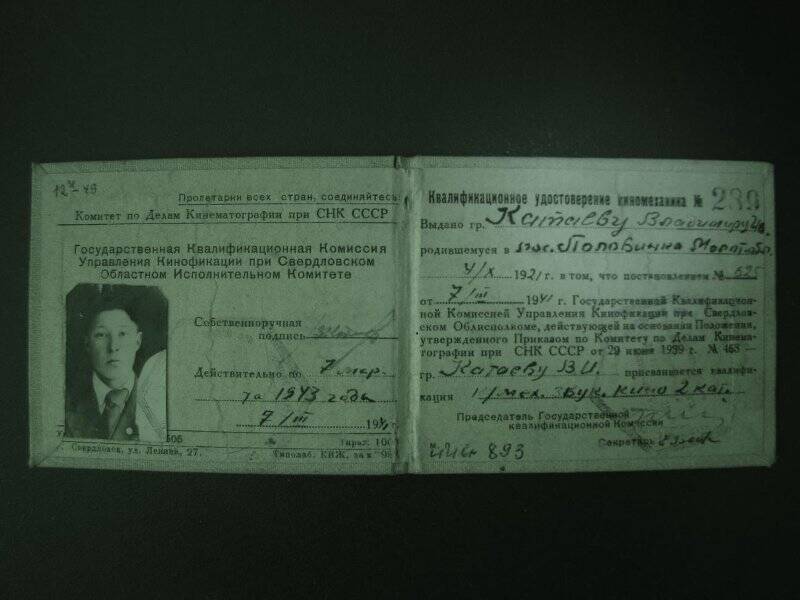 Пролетарии всех стран, соединяйтесь
Комитет по Делам Кинематографии при СНК СССР
Государственная Квалификационная Комиссия
Управления Кинофикации при Свердловском
Областном Исполнительном Комитете
Собственноручная
подпись
Действительно по 7 мар.
1943 года
7/III 194
№ Тираж 100
г. Свердловск, ул. Ленина, 27. Типолаб. КИЖ, зак
Квалификационное удостоверение киномеханика № 239
Выдано гр. Катаеву Владимиру
родившемуся в пос. Половинка
4/X 1921 г. в том, что постановлением № 625
от 7/III 1941 г. Государственной Квалификацион-
ной Комиссией Управления Кинофикации при Свердлов-
ском Облисполкоме, действующей на основании Положения,
утвержденного Приказом по Комитету по Делам Кинема-
тографии при СНК СССР от 29 июня 1939 г. № 463—
гр. Катаеву В.И. присваивается квалифи-
кация к/мех. звук. кино 2 кат.
Председатель Государственной
квалификационной Комиссии
Секретарь
893